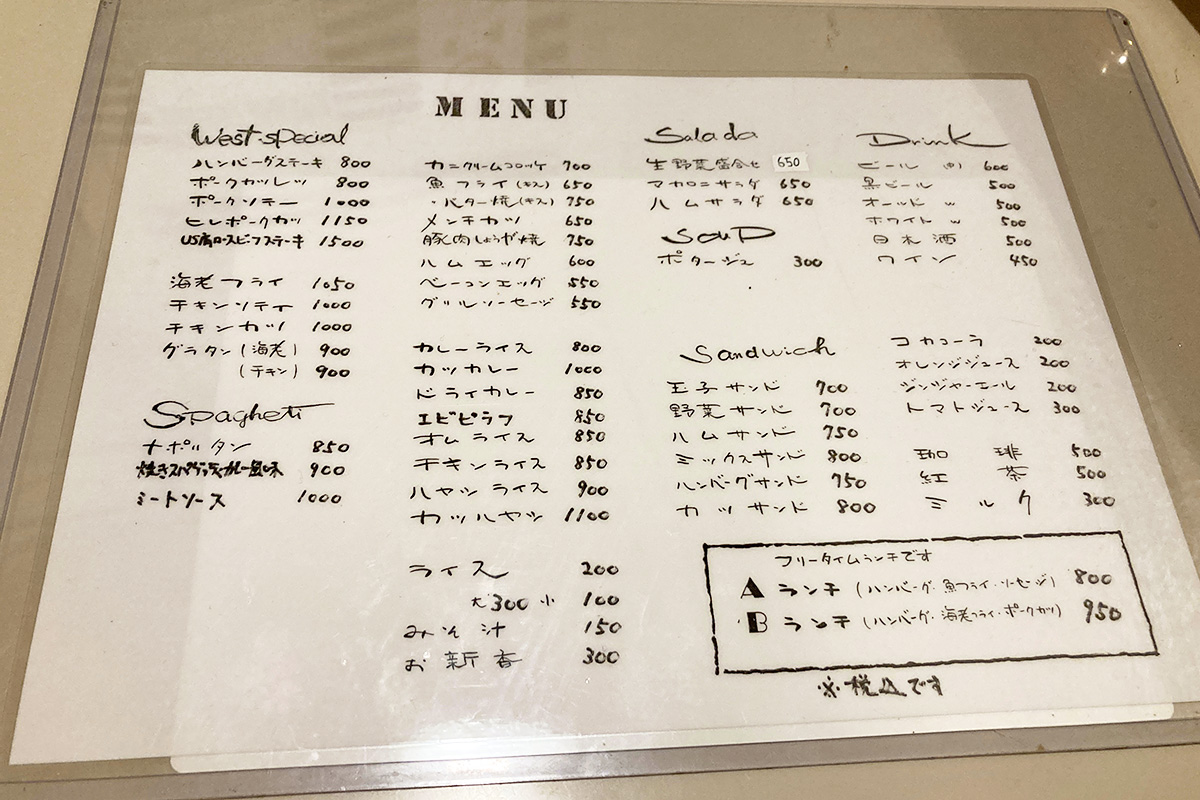 MENU
West special
ハンバーグステーキ 800
ポークカツレツ 800
ポークソテー 1000
ヒレポークカツ 1150
US肩ロースビーフステーキ 1500
海老フライ 1050
チキンソテイ 1000
チキンカツ 1000
グラタン(海老) 900
(チキン) 900
Spagheti
ナポルタン 850
焼きスパゲッティカレー風味 900
ミートソース 1000
カニクリームコロッケ 700
魚フライ(キス) 650
〃バター焼(キス) 750
メンチカツ 650
豚肉しょうが焼 750
ハムエッグ 600
ベーコンエッグ 550
グリルソーセージ 550
カレーライス 800
カツカレー 1000
ドライカレー 850
エビピラフ 850
オムライス 850
チキンライス 850
ハヤシライス 900
カツハヤシ 1100
ライス 200
大300 小 100
みそ汁 150
お新香 300
Salada
生野菜盛合せ 650
マカロニサラダ 650
ハムサラダ 650
Soup
ポタージュ 300
Sandwich
玉子サンド 700
野菜サンド 700
ハムサンド 750
ミックスサンド 800
ハンバーグサンド 750
カツサンド 800
Drink
ビール (中) 600
黒ビール 500
オールド W 500
ホワイト W 500
日本酒 500
ワイン 450
コカコーラ 200
オレンジジュース 200
ジンジャーエール 200
トマトジュース 300
珈琲 500
紅茶 500
ミルク 300
フリータイムランチです
A ランチ (ハンバーグ・魚フライ・ソーセージ) 800
B ランチ (ハンバーグ・海老フライ・ポークカツ) 950
※税込です